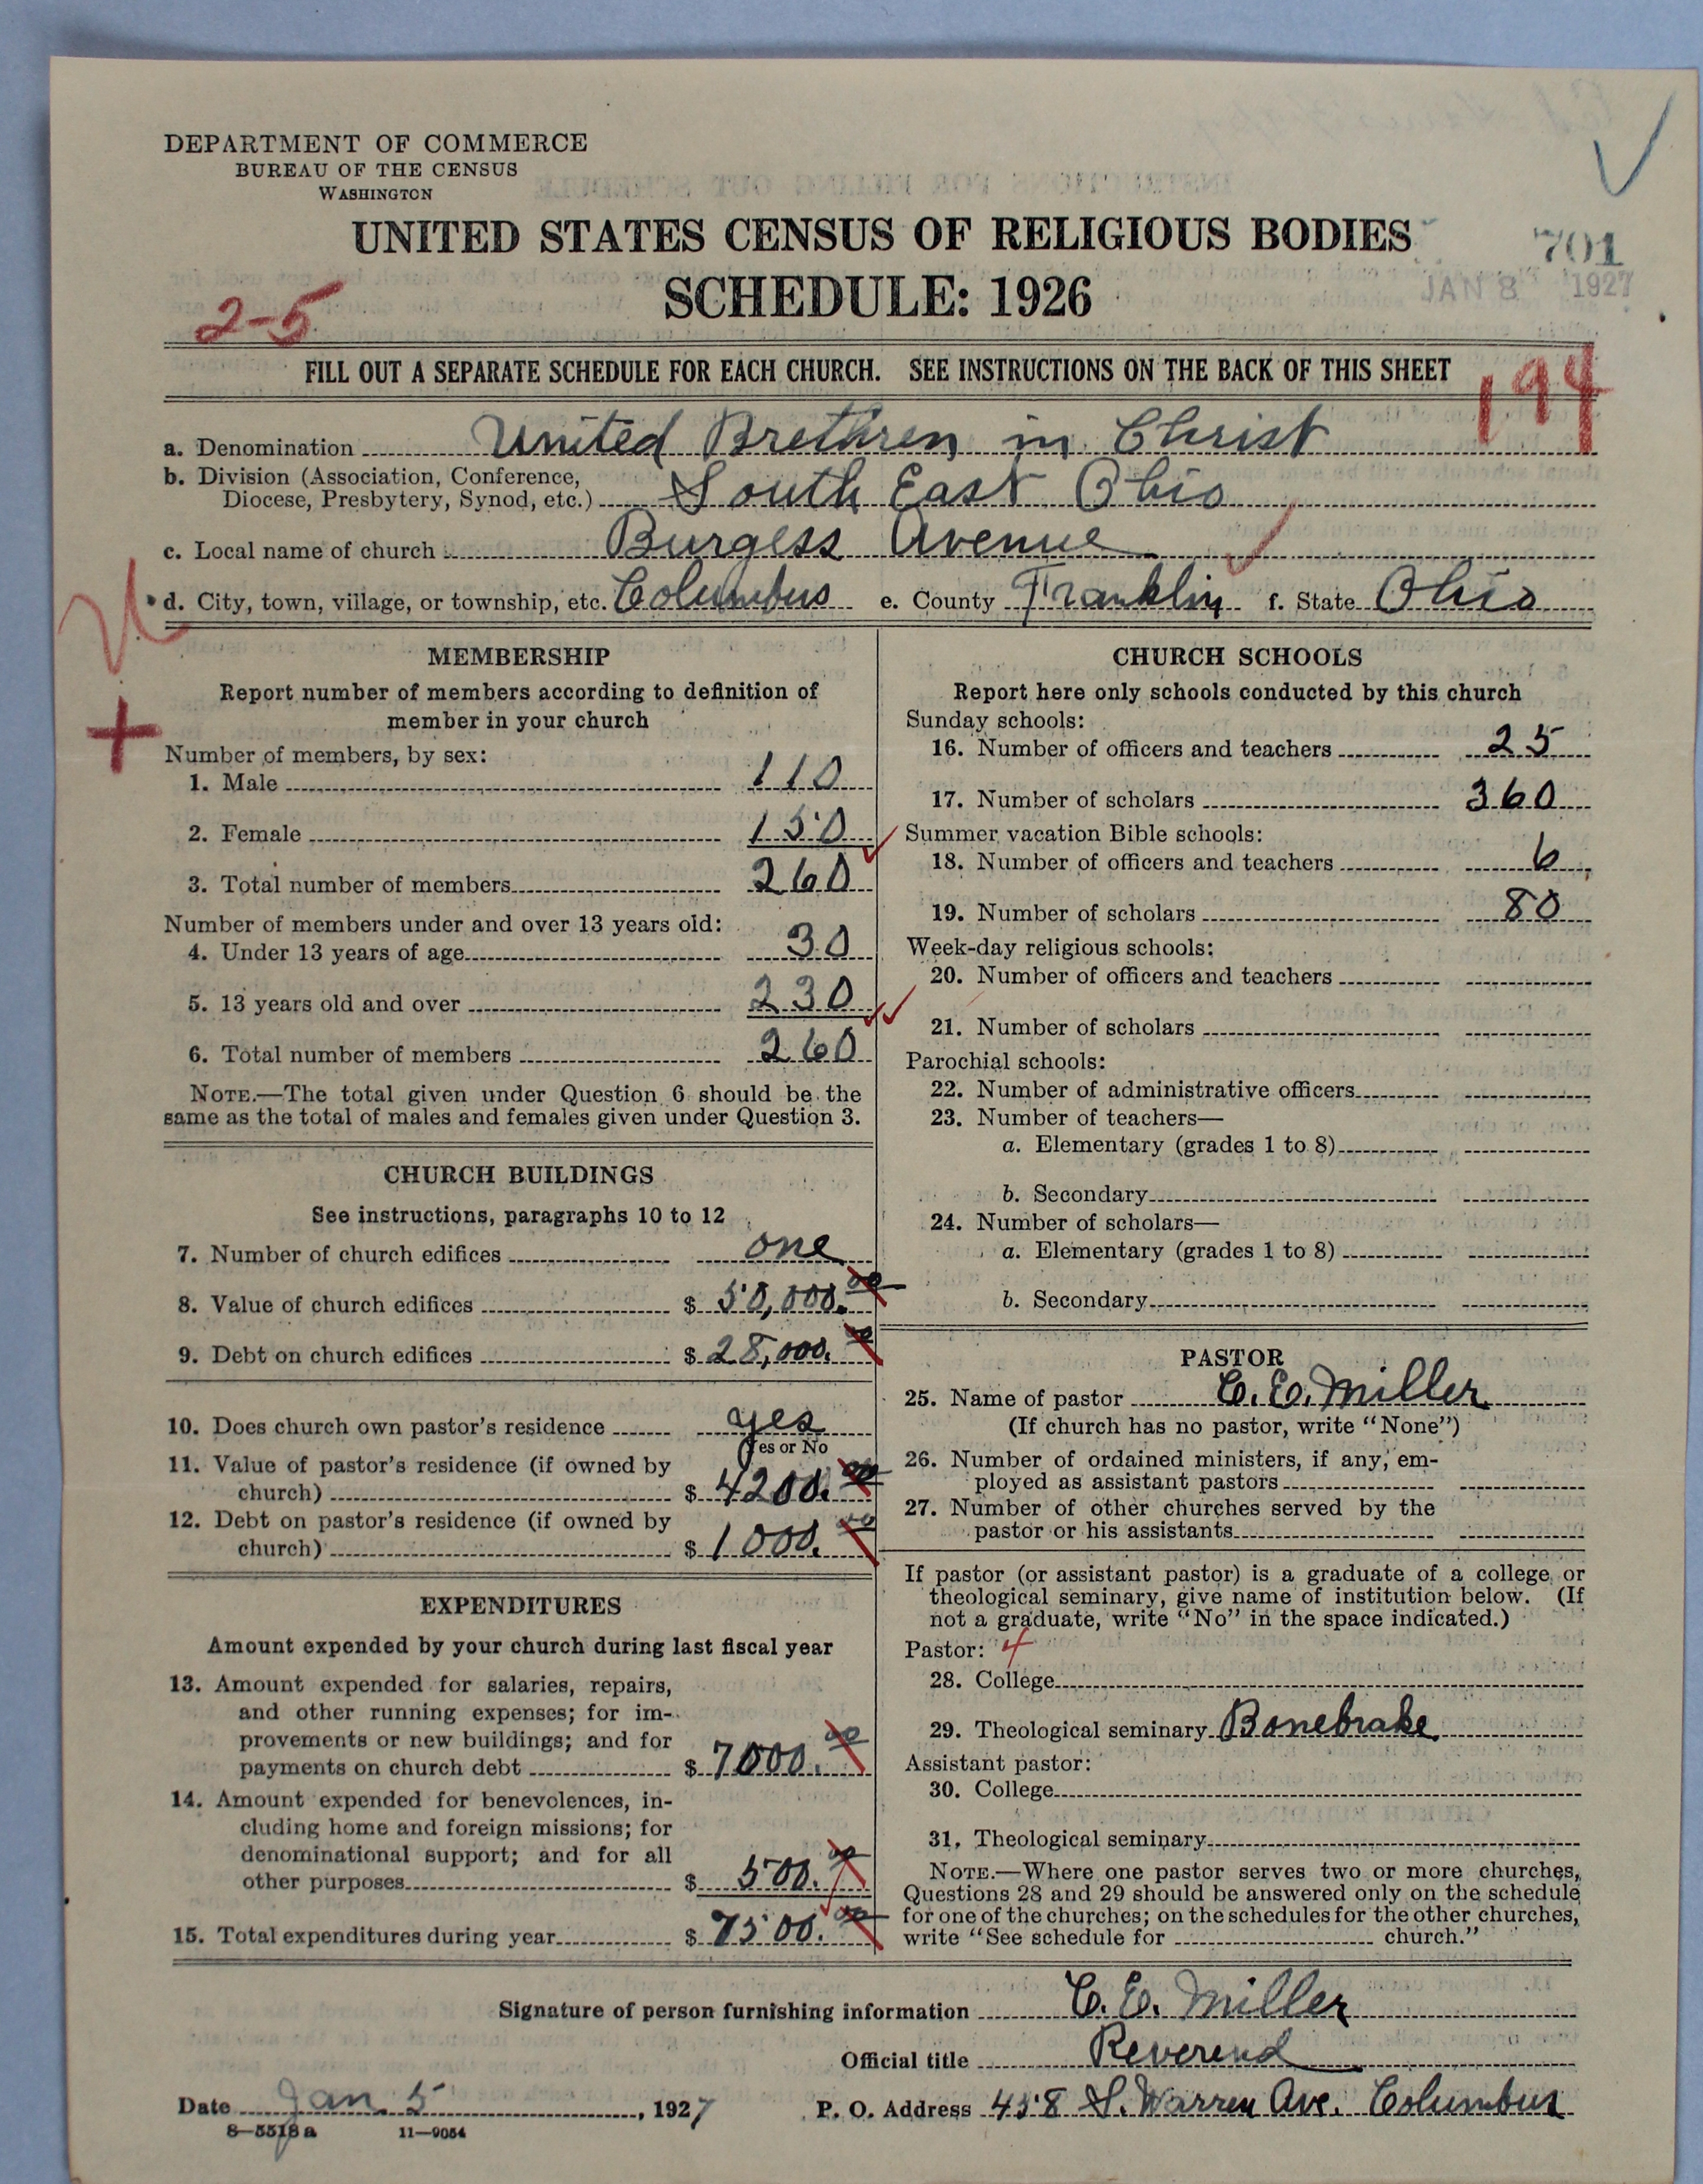 DEPARTMENT OF COMMERCE
BUREAU OF THE CENSUS
WASHINGTON
UNITED STATES CENSUS OF RELIGIOUS BODIES
701
SCHEDULE: 1926
JAN 8 1927
2-5
FILL OUT A SEPARATE SCHEDULE FOR EACH CHURCH. SEE INSTRUCTIONS ON THE BACK OF THIS SHEET
194
a. Denomination United Brethren in Christ
b. Division (Association, Conference,
Diocese, Presbytery, Synod, etc.) South East Ohio
c. Local name of church Burgess Avenue
d. City, town, village, or township, etc. Columbus e. County Franklin f. State Ohio
MEMBERSHIP
Report number of members according to definition of
member in your church
Number of members, by sex:
1. Male 110
2. Female 150
3. Total number of members 260
Number of members under and over 13 years old:
4. Under 13 years of age 30
5. 13 years old and over 230
6. Total number of members 260
NOTE.—The total given under Question 6 should be the
same as the total of males and females given under Question 3.
CHURCH BUILDINGS
See instructions, paragraphs 10 to 12
7. Number of church edifices one
8. Value of church edifices $ 50,000.00
9. Debt on church edifices $ 28,000.00
10. Does church own pastor's residence yes
Yes or No
11. Value of pastor's residence (if owned by
church) $ 4200.00
12. Debt on pastor's residence (if owned by
church) $ 1000.00
EXPENDITURES
Amount expended by your church during last fiscal year
13. Amount expended for salaries, repairs,
and other running expenses; for im-
provements or new buildings; and for
payments on church debt $ 7000.00
14. Amount expended for benevolences, in-
cluding home and foreign missions; for
denominational support; and for all
other purposes $ 500.00
15. Total expenditures during year $ 7500.00
CHURCH SCHOOLS
Report here only schools conducted by this church
Sunday schools:
16. Number of officers and teachers 25
17. Number of scholars 360
Summer vacation Bible schools:
18. Number of officers and teachers 6
19. Number of scholars 80
Week-day religious schools:
20. Number of officers and teachers
21. Number of scholars
Parochial schools:
22. Number of administrative officers
23. Number of teachers—
a. Elementary (grades 1 to 8)
b. Secondary
24. Number of scholars—
a. Elementary (grades 1 to 8)
b. Secondary
PASTOR
25. Name of pastor C. E. Miller
(If church has no pastor, write "None")
26. Number of ordained ministers, if any, em-
ployed as assistant pastors
27. Number of other churches served by the
pastor or his assistants
If pastor (or assistant pastor) is a graduate of a college or
theological seminary, give name of institution below. (If
not a graduate, write "No" in the space indicated.)
Pastor: 4
28. College
29. Theological seminary Bonebrake
Assistant pastor:
30. College
31. Theological seminary
NOTE.—Where one pastor serves two or more churches,
Questions 28 and 29 should be answered only on the schedule
for one of the churches; on the schedules for the other churches,
write "See schedule for church."
Signature of person furnishing information C. E. Miller
Official title Reverend
Date Jan. 5, 1927 P. O. Address 458 S. Warren Ave. Columbus
8—5518a 11—9054